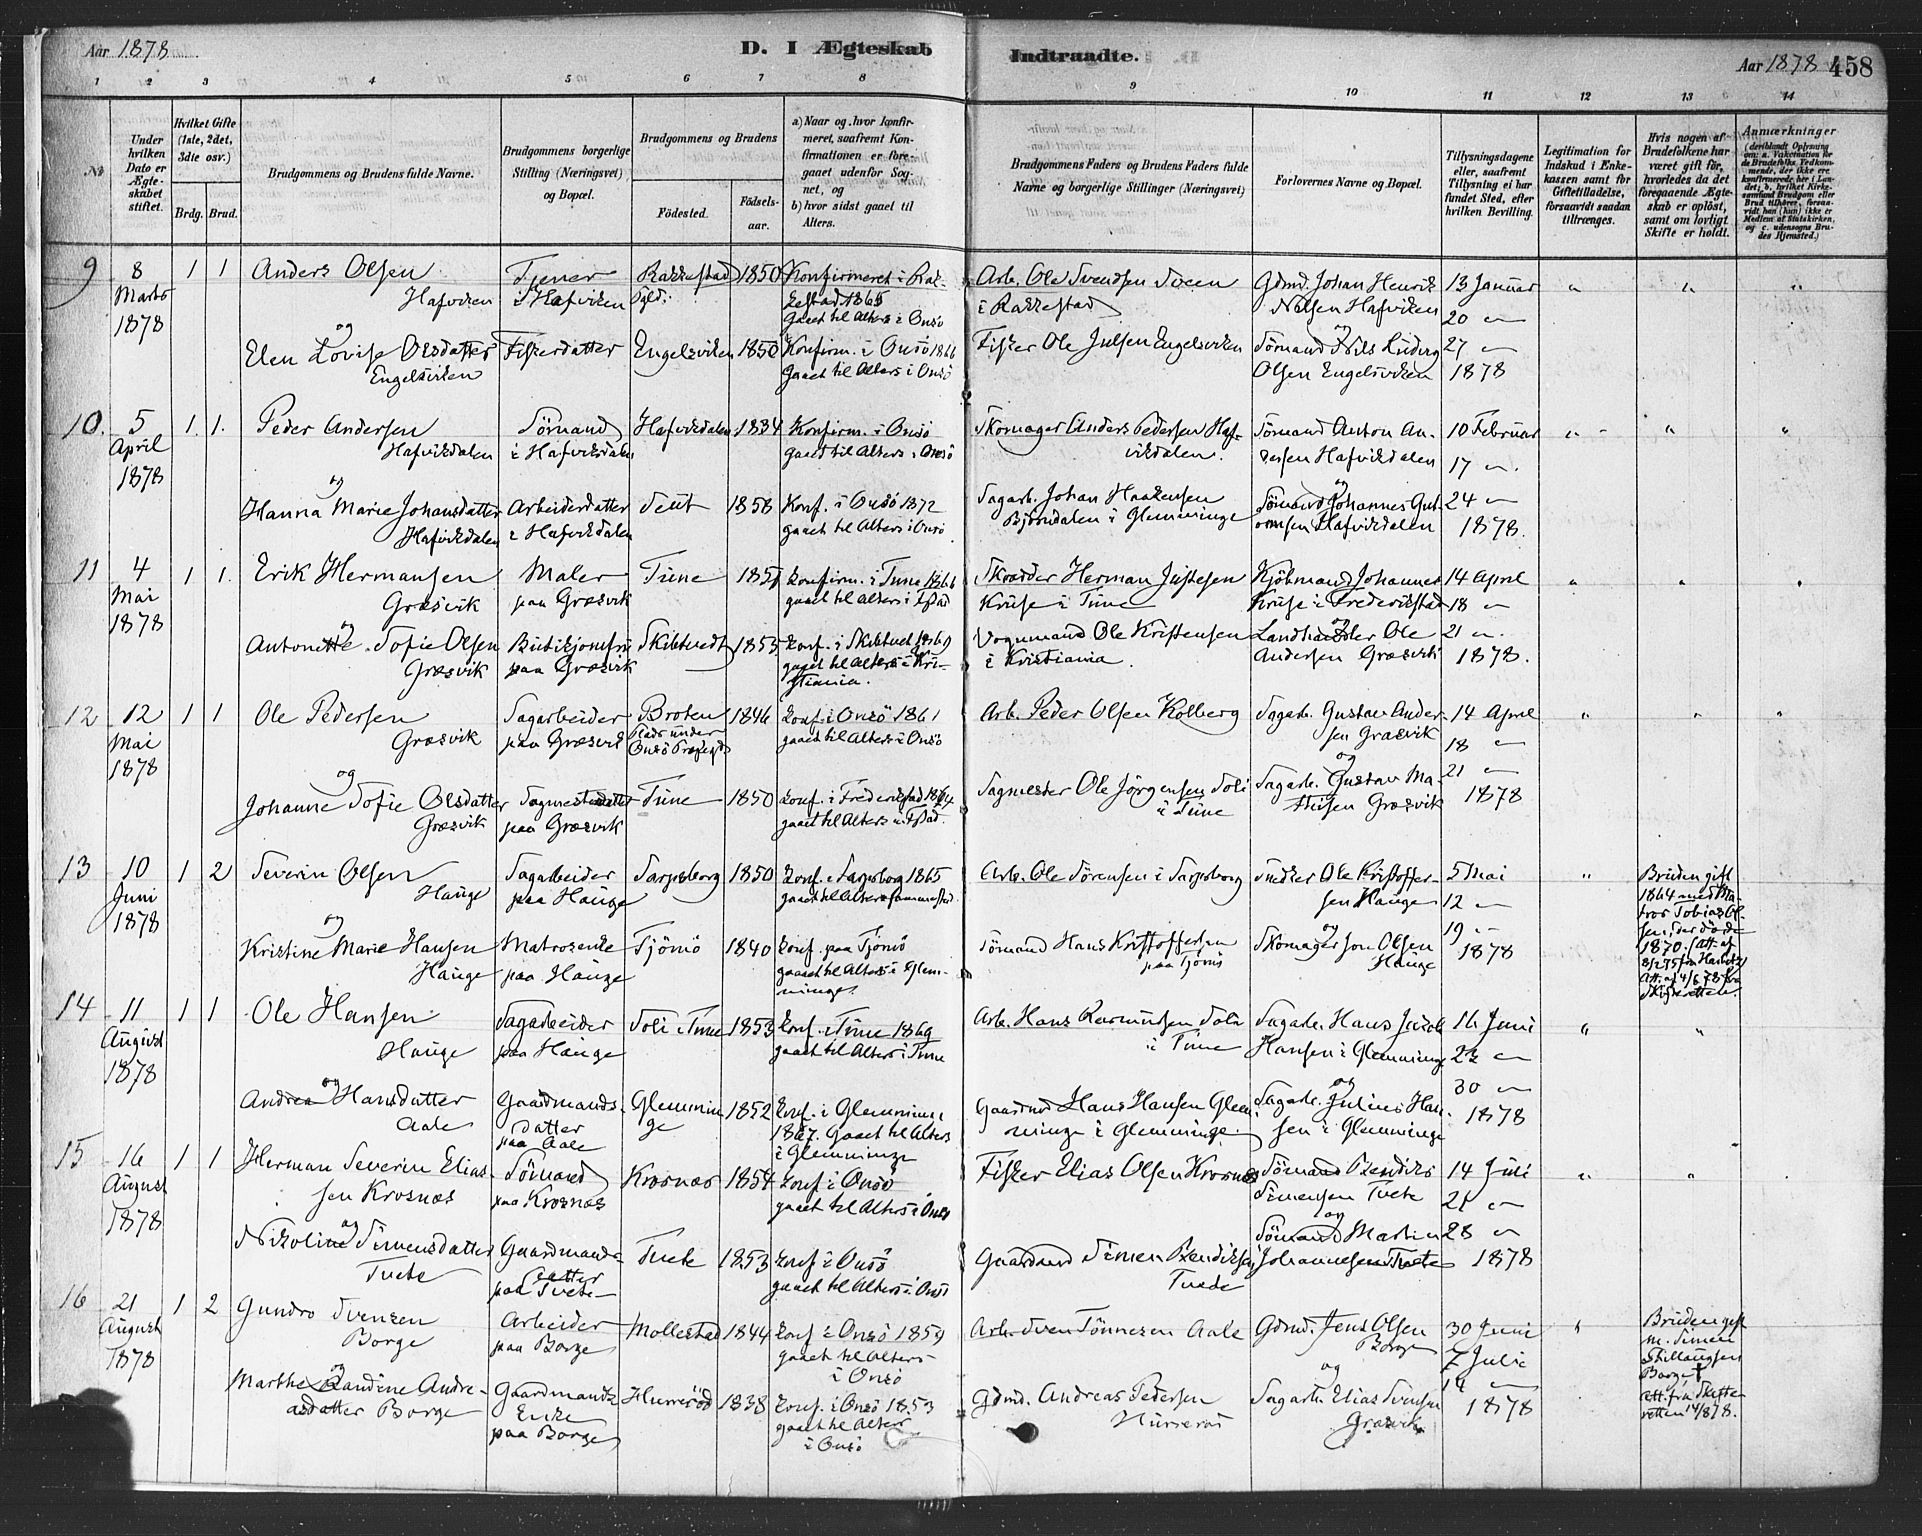 Aar 1878
D. I Ægteskab Indtraadte.
Aar 1878 458
1 2 3 4 5 6 7 8 9 10 11 12 13 14
No.
Under hvilken Dato er Ægteskabet stiftet.
Hvilket Gifte (1ste, 2det, 3die osv.)
Brdg. Brud.
Brudgommens og Brudens fulde Navne.
Brudgommens borgerlige Stilling (Næringsvei) og Bopæl.
Brudgommens og Brudens
Fødested. Fødselsaar.
a) Naar og hvor konfirmeret, saafremt Konfirmationen er foregaaet udenfor Sognet, og
b) hvor sidst gaaet til Alters.
Brudgommens Faders og Brudens Faders fulde Navne og borgerlige Stillinger (Næringsvei)
Forlovernes Navne og Bopæl.
Tillysningsdagene eller, saafremt Tillysning ei har fundet Sted, efter hvilken Bevilling.
Legitimation for Indskud i Enkekassen samt for Giftetilladelse, forsaavidt saadan tiltrænges.
Hvis nogen af Brudefolkene har været gift før, hvorledes da det foregaaende Ægteskab er opløst, samt om lovligt Skifte er holdt.
Anmærkninger (deriblandt Oplysning om: a. Vakcination for de Brudefolks Vedkommende, der ikke ere konfirmerede her i Landet; b. hvilket Kirkesamfund Brudgom eller Brud tilhører, forsaavidt han (hun) ikke er Medlem af Statskirken, og c. udensogns Brudes Hjemsted.)
9 8 Marts 1878 1 1 Anders Olsen Hafviken Tjener i Hafviken Rakkestad Pgld. 1850 Konfirmeret i Rakkestad 1865 gaaet til Alters i Onsö Arb. Ole Svendsen i Rakkestad Gdmd. Johan Henrik Nilsen Hafviken 13 Januar 20 "
og
Elen Lovise Olsdatter Engelsviken Fiskerdatter Engelsviken 1850 Konfirm. i Onsö 1866 gaaet til Alters i Onsö Fisker Ole Julsen Engelsviken og Sömand Nils Ludvig Olsen Engelsviken 27 " 1878
10. 5 April 1878 1. 1. Peder Andersen Hafvikdalen Sömand i Hafvikdalen Hafvikdalen 1834 Konfirm. i Onsö gaaet til Alters i Onsö Skomager Anders Pedersen Hafvikdalen. Sömand Anton Andersen Hafvikdalen 10 Februar 17 "
og
Hanna Marie Johansdatter Hafvikdalen Arbeiderdatter i Hafvikdalen Seut 1858 Konf. i Onsö 1872 gaaet til Alters i Onsö Sagarb. Johan Haakensen Bjørndalen i Glemminge og Sömand Johannes Guttormsen Hafvikdalen 24 " 1878.
11 4 Mai 1878 1 1. Erik Hermansen Græsvik Maler paa Græsvik Tune 1851 Konfirm. i Tune 1866 gaaet til Alters i Fstad Skrædder Herman Justesen Kruse i Tune Kjöbmand Johannes Kruse i Frederikstad 14 April 18 "
og
Antonette Sofie Olsen Græsvik Butikjomfru paa Græsvik Skibtvedt 1855 Konf. i Skibtvet 1869 gaaet til Alters i Kristiania. Vognmand Ole Kristensen i Kristiania. og Landhandler Ole Andersen Græsvik 21 " 1878.
12 12 Mai 1878 1 1 Ole Pedersen Græsvik Sagarbeider paa Græsvik Broten Plads under Onsö Prægd 1846 Konf. i Onsö 1861 gaaet til Alters i Onsö Arb. Peder Olsen Kolberg Sagarb. Gustav Andersen Græsvik 14 April 18 "
og
Johanne Sofie Olsdatter Græsvik Sagmesterdatter paa Græsvik Tune 1850 Konf. i Frederikstad 1864 gaaet til Alters i Fstad. Sagmester Ole Jörgensen Soli i Tune og Sagarb. Gustav Mathisen Græsvik 21 " 1878
13 10 Juni 1878 1 2 Severin Olsen Hauge Sagarbeider paa Hauge Sarpsborg 1850 Konf. i Sarpsborg 1865 gaaet til Alters sammested. Arb. Ole Sörensen i Sarpsborg Snedker Ole Kristoffersen Hauge 5 Mai 12 "
Bruden gift 1864 med Matros Tobias Olsen, der döde 1870.
og
Kristine Marie Hansen Hauge Matrosenke paa Hauge Tjömö 1840 Konf. paa Tjömö gaaet til Alters i Glemminge. Sömand Hans Kristoffersen paa Tjömö og Skomager Jon Olsen Hauge 19 " 1878
14 11 August 1878 1 1 Ole Hansen Hauge Sagarbeider paa Hauge Soli i Tune 1853 Konf. i Tune 1869 gaaet til Alters i Tune Arb. Hans Rasmussen Soli i Tune Sagarb. Hans Jacob Hansen i Glemminge 16 Juni 23 "
og
Andrea Hansdatter Aale Gaardmandsdatter paa Aale Glemminge 1852 Konf. i Glemminge 1867. Gaaet til Alters i Glemminge Gaardmd Hans Hansen Glemminge i Glemminge. og Sagarb. Julius Hansen i Glemminge 30 " 1878
15 16 August 1878 1 1 Herman Severin Eliassen Krosnæs Sömand paa Krosnæs Krosnæs 1854 Konf. i Onsö gaaet til Alters i Onsö Fisker Elias Olsen Krosnæs Sömand Bendiks Simensen Tvete 14 Juli 21 "
og
Nikoline Simensdatter Tvete Gaardmandsdatter paa Tvete Tvete 1853 Konf. i Onsö gaaet til Alters i Onsö Gaardmd Simen Bendiksen Tvete og Sömand Martin Johannesen Tvete 28 " 1878
16 21 August 1878 1 2 Gundro Svensen Borge Arbeider paa Borge Mollestad 1844 Konf. i Onsö 1859 gaaet til Alters i Onsö Arb. Sven Tönnesen Aale Gdmd. Jens Olsen Borge 30 Juni 7 Juli
Bruden gift m. Simen Borge † Att. fra Skifteretten 14/8 78.
og
Marthe Randine Andreasdatter Borge Gaardmandsenke paa Borge 1838 Konf. i Onsö 1853 gaaet til Alters i Onsö Gdmd. Andreas Pedersen og Sagarb. Elias Svensen Græsvik 14 " 1878